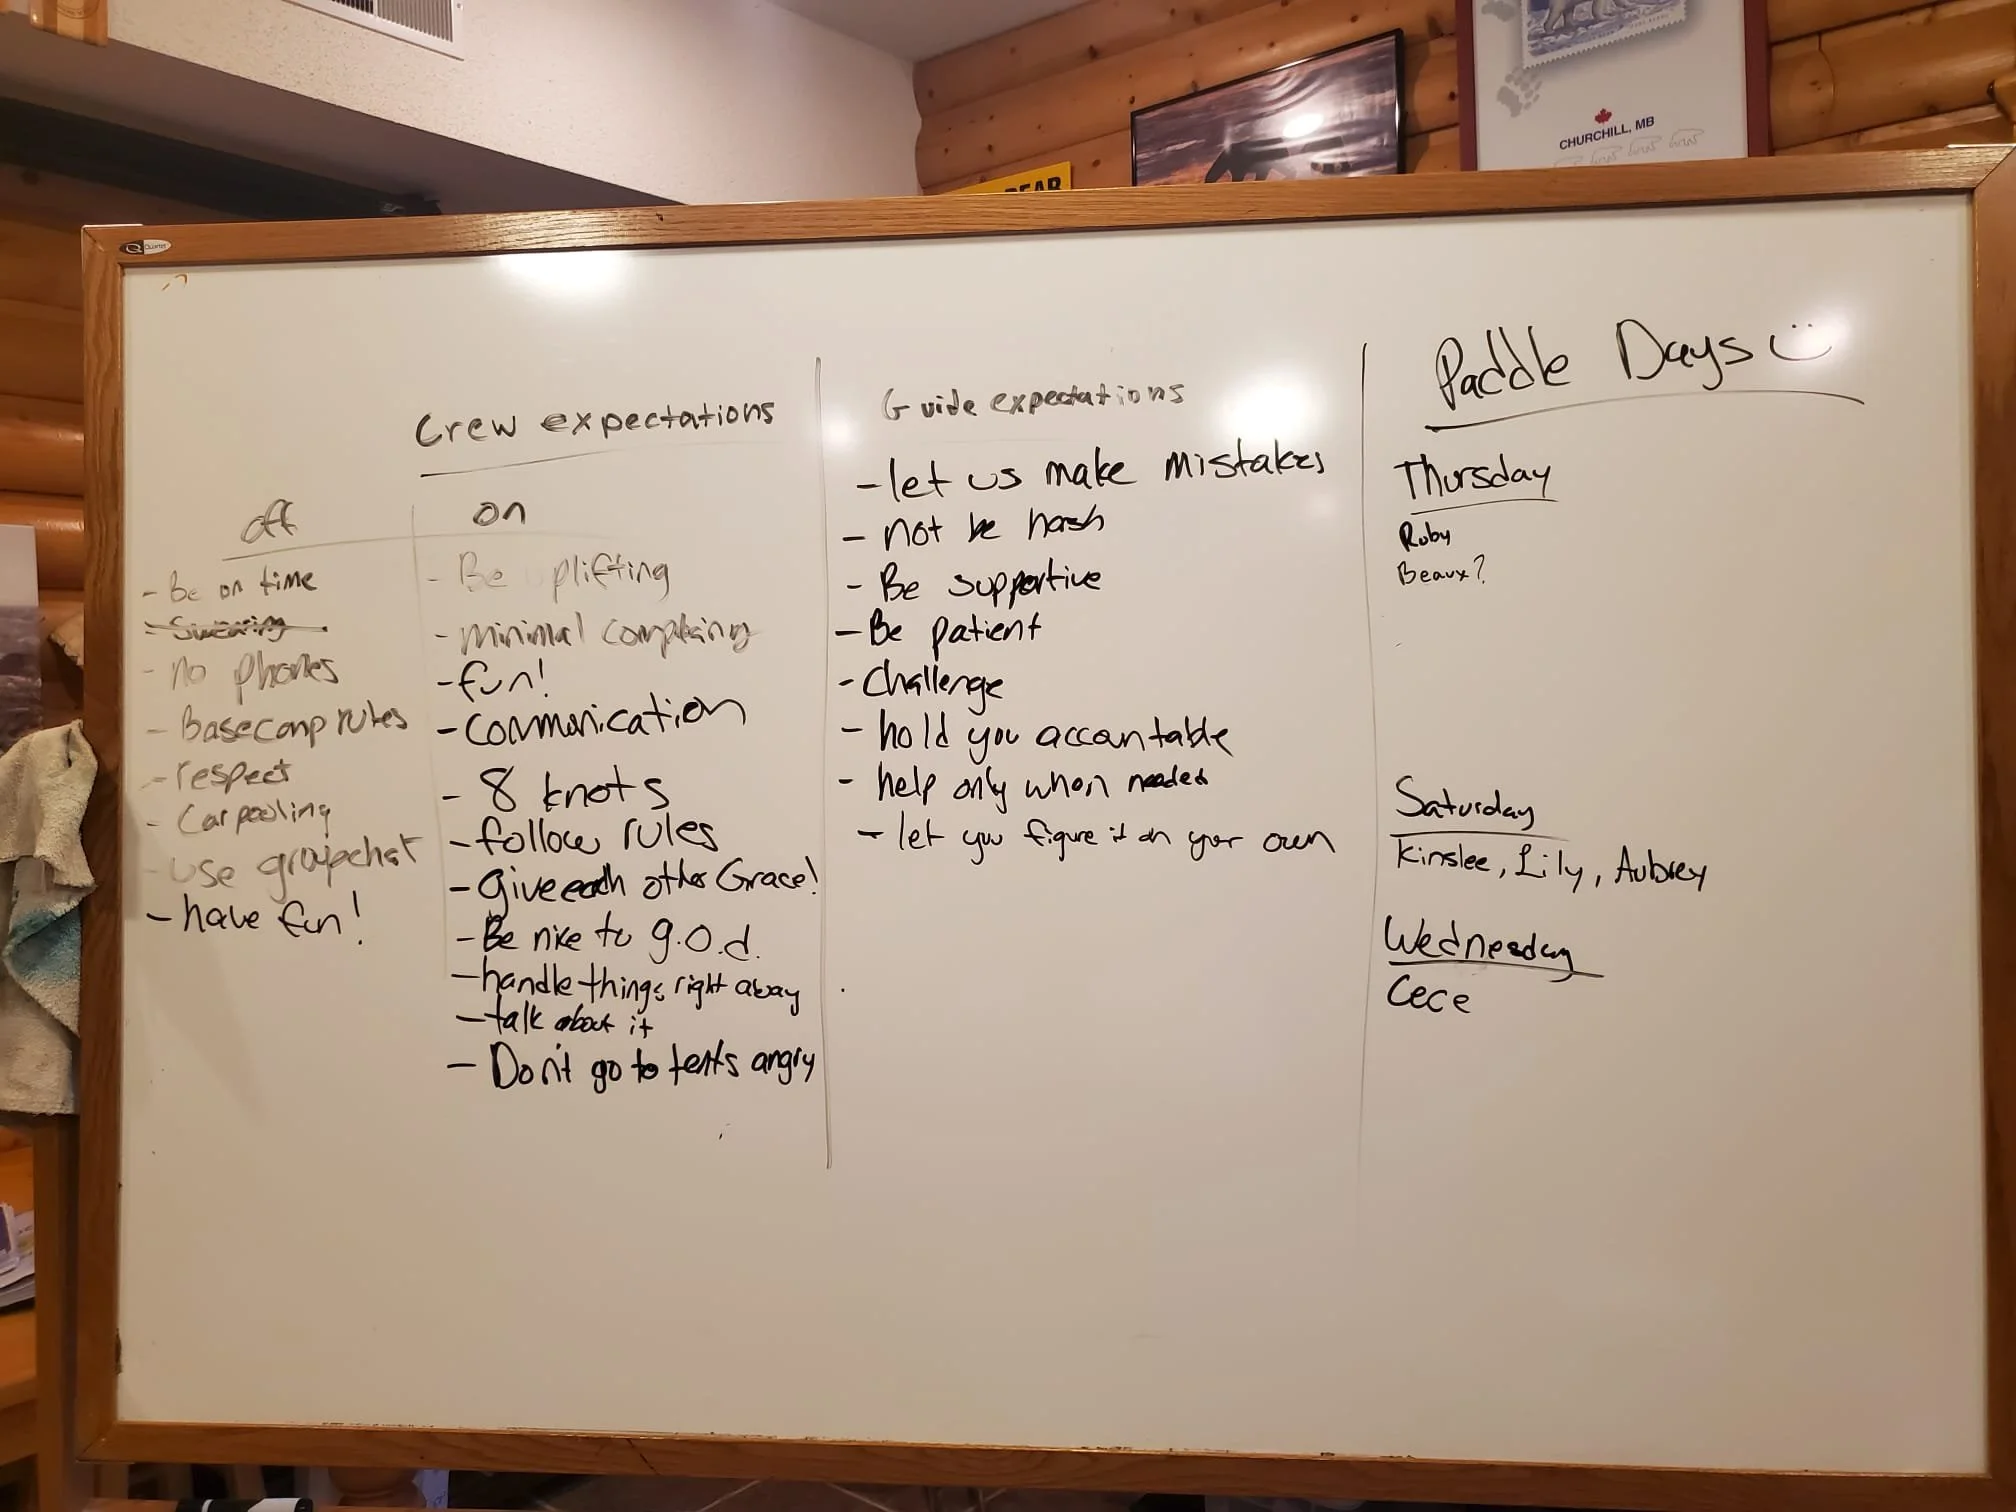 CHURCHILL, MB
Quartet
Crew expectations
off
- Be on time
- Swearing
- no phones
- Basecamp rules
- respect
- Carpooling
- use groupchat
- have fun!
on
- Be uplifting
- minimal complaining
- fun!
- communication
- 8 knots
- follow rules
- give each other Grace!
- Be nice to g.o.d.
- handle things right away
- talk about it
- Don't go to tents angry
Guide expectations
- let us make mistakes
- not be harsh
- Be supportive
- Be patient
- Challenge
- hold you accountable
- help only when needed
- let you figure it on your own
Paddle Days
Thursday
Ruby
Beaux?
Saturday
Kinslee, Lily, Aubrey
Wednesday
Cece